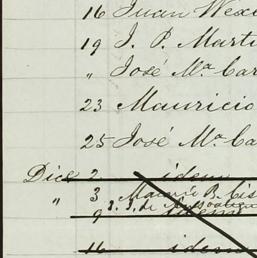 16 Juan Wex
19 J. P. Marti
" José Mª Car
23 Mauricio
25 José Mª Ca
Dice 2 idem
" 3 Mauricio B. Cis
9 idem
16 idem